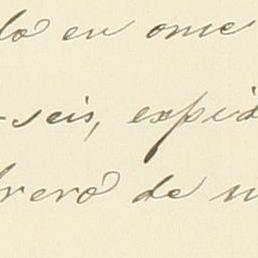 do en one
-seis, expid
brero de m